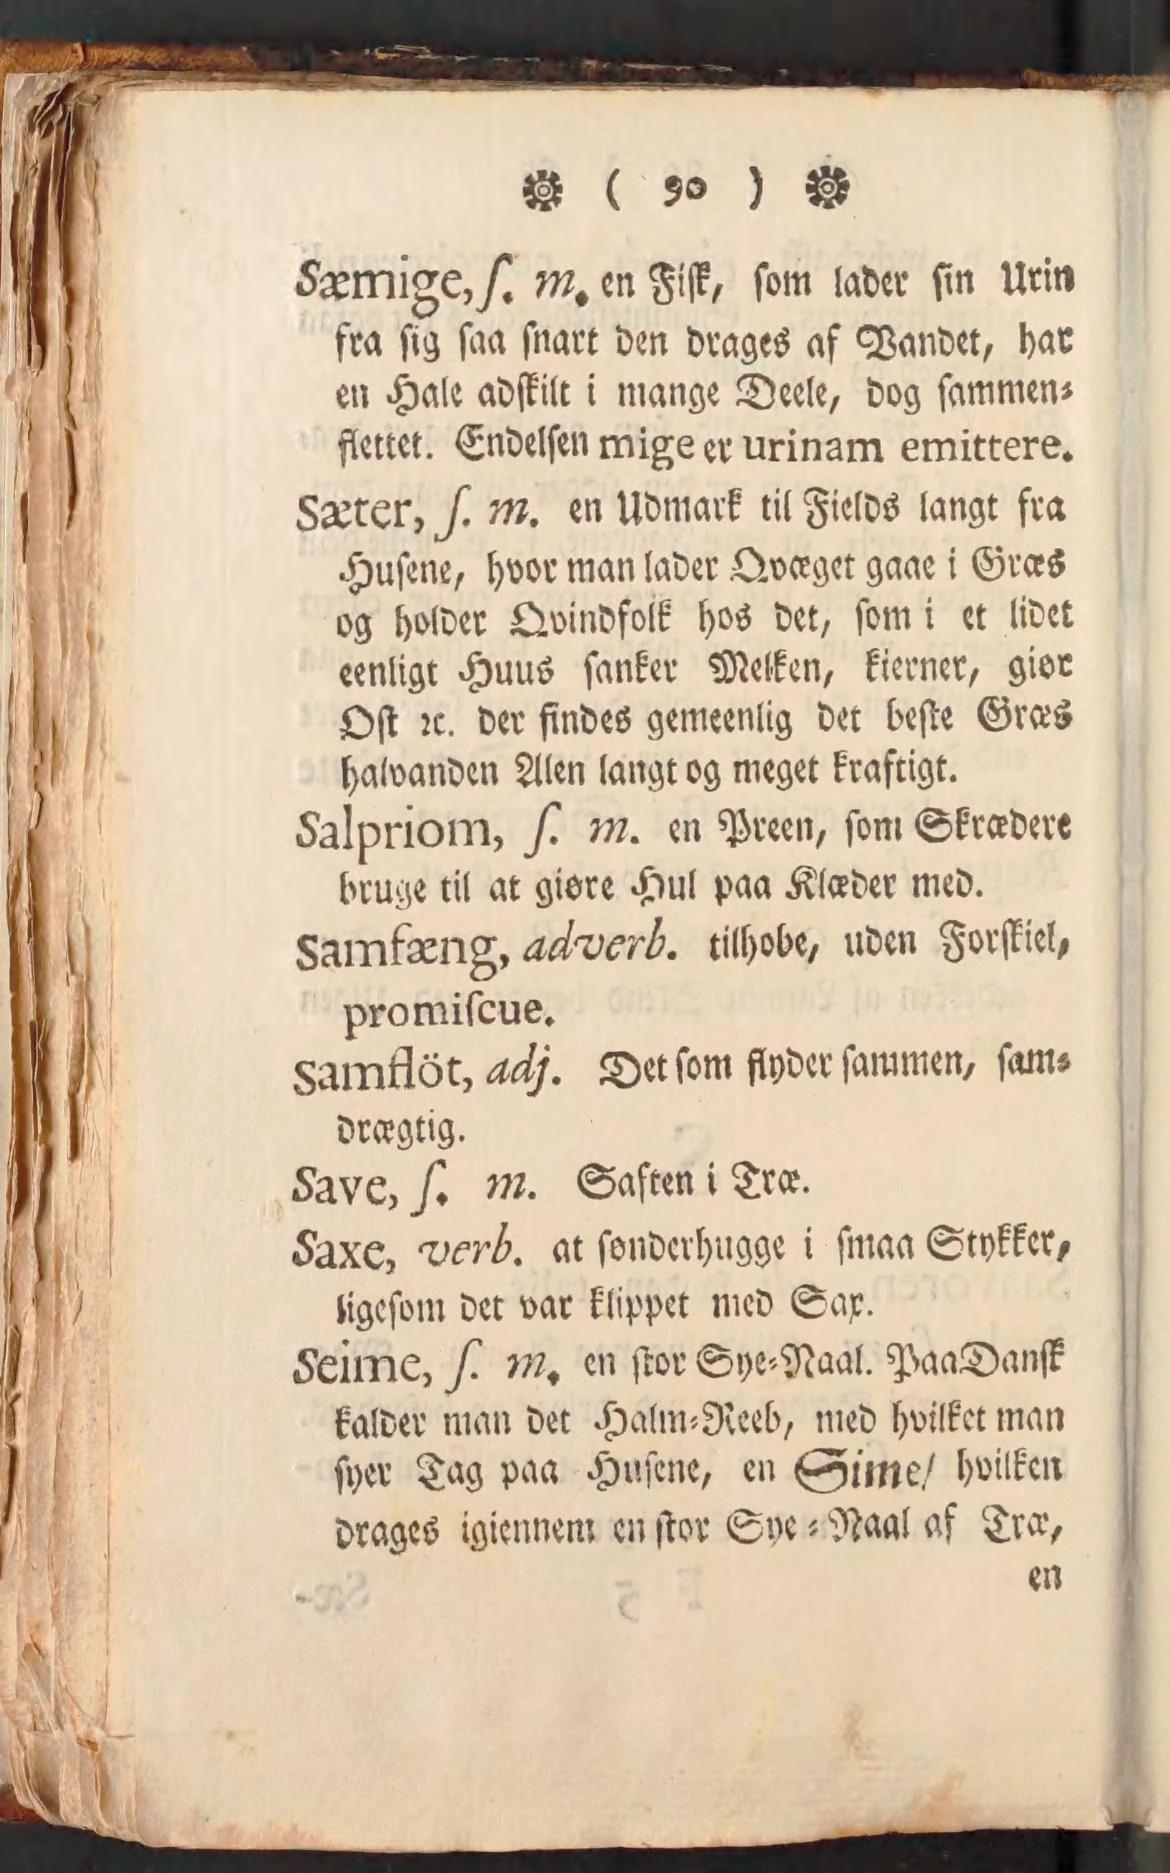 ( 90 )
Sæmige, ſ. m. en Fiſk, ſom lader ſin Urin
fra ſig ſaa ſnart den drages af Vandet, har
en Hale adſkilt i mange Deele, dog ſammen⸗
flettet. Endelſen mige er urinam emittere.
Sæter, ſ. m. en Udmark til Fields langt fra
Huſene, hvor man lader Qvæget gaae i Græs
og holder Qvindfolk hos det, ſom i et lidet
eenligt Huus ſanker Melken, kierner, giør
Oſt ꝛc. der findes gemeenlig det beſte Græs
halvanden Alen langt og meget kraftigt.
Salpriom, ſ. m. en Preen, ſom Skrædere
bruge til at giøre Hul paa Klæder med.
Samfæng, adverb. tilhobe, uden Forſkiel,
promiſcue.
Samflöt, adj. Det ſom flyder ſammen, ſam⸗
drægtig.
Save, ſ. m. Saften i Træ.
Saxe, verb. at ſønderhugge i ſmaa Stykker,
ligeſom det var klippet med Sax.
Seime, ſ. m. en ſtor Sye⸗Naal. Paa Danſk
kalder man det Halm⸗Reeb, med hvilket man
ſyer Tag paa Huſene, en Sime/ hvilken
drages igiennem en ſtor Sye⸗Naal af Træ,
en